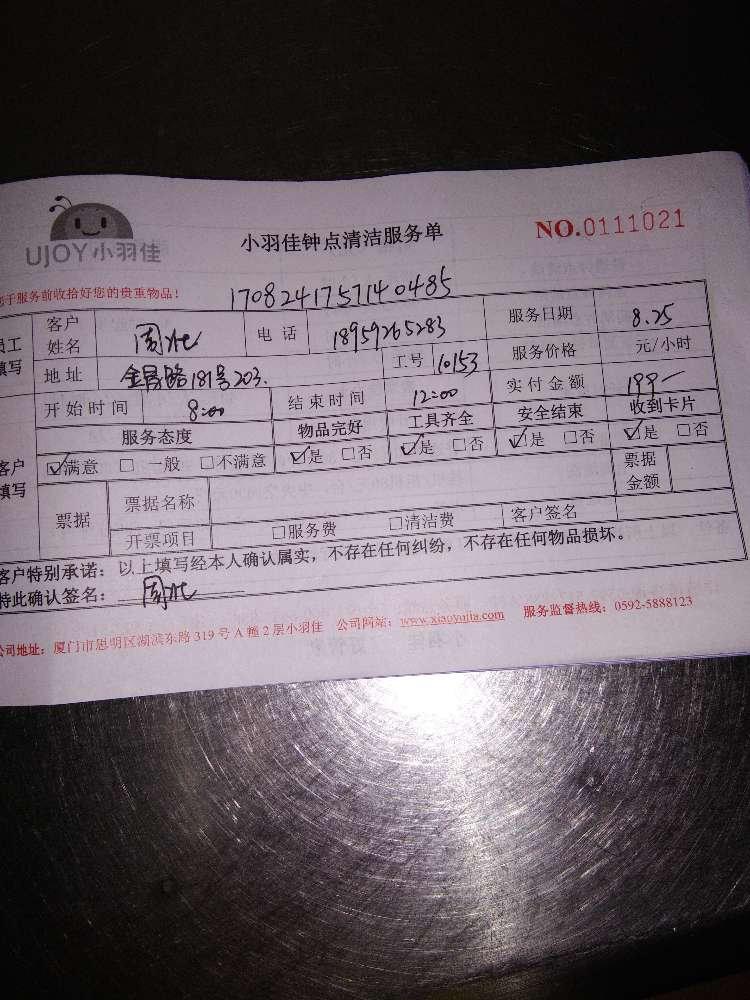 UJOY小羽佳
小羽佳钟点清洁服务单
NO.0111021
于服务前收拾好您的贵重物品！
1708241757140485
员工填写
客户姓名 周 电话 18959265283 服务日期 8.25
地址 金昌路181号203. 工号 10153 服务价格 元/小时
开始时间 8:00 结束时间 12:00 实付金额 199-
服务态度 物品完好 工具齐全 安全结束 收到卡片
客户填写
☑满意 □一般 □不满意 ☑是 □否 ☑是 □否 ☑是 □否 ☑是 □否
票据 票据名称 票据金额
开票项目 □服务费 □清洁费 客户签名
客户特别承诺：以上填写经本人确认属实，不存在任何纠纷，不存在任何物品损坏。
特此确认签名： 周
公司地址：厦门市思明区湖滨东路319号A幢2层小羽佳 公司网站：www.xiaoyujia.com 服务监督热线：0592-5888123